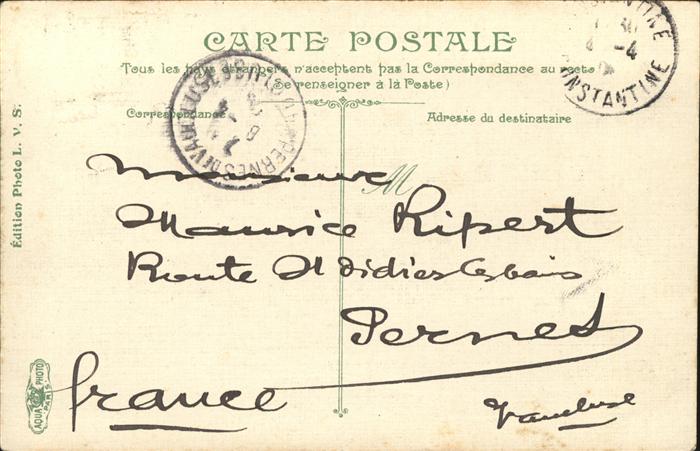 CARTE POSTALE
Tous les pays étrangers n'acceptent pas la Correspondance au recto
(Se renseigner à la Poste)
Correspondance
Adresse du destinataire
CONSTANTINE
CONSTANTINE
PERNES
VAUCLUSE
Édition Photo L. V. S.
M
Monsieur
Maurice Ripert
Route St Didier les bains
Pernes
france
Vaucluse
AQUA PHOTO
PARIS